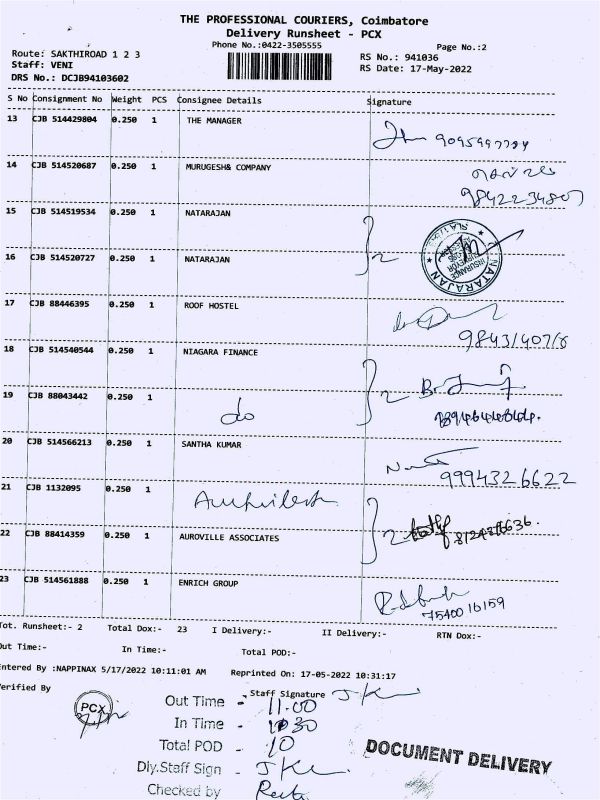 THE PROFESSIONAL COURIERS, Coimbatore
Delivery Runsheet - PCX
Phone No.:0422-3505555
Page No.:2
Route: SAKTHIROAD 1 2 3
RS No.: 941036
Staff: VENI
RS Date: 17-May-2022
DRS No.: DCJB94103602
S No Consignment No Weight PCS Consignee Details Signature
13 CJB 514429804 0.250 1 THE MANAGER
14 CJB 514520687 0.250 1 MURUGESH& COMPANY
9842234807
15 CJB 514519534 0.250 1 NATARAJAN
16 CJB 514520727 0.250 1 NATARAJAN
2
NATARAJAN
INSURANCE
SURVEYOR
17 CJB 88446395 0.250 1 ROOF HOSTEL
18 CJB 514540544 0.250 1 NIAGARA FINANCE
19 CJB 88043442 0.250 1 do
2
20 CJB 514566213 0.250 1 SANTHA KUMAR
9994326622
21 CJB 1132095 0.250 1
22 CJB 88414359 0.250 1 AUROVILLE ASSOCIATES
2
23 CJB 514561888 0.250 1 ENRICH GROUP
7540010159
Tot. Runsheet:- 2 Total Dox:- 23 I Delivery:- II Delivery:- RTN Dox:-
Out Time:- In Time:- Total POD:-
Entered By :NAPPINAX 5/17/2022 10:11:01 AM Reprinted On: 17-05-2022 10:31:17
Verified By Staff Signature
PCX
Out Time - 11.00
In Time - 30
Total POD - 10
Dly.Staff Sign -
Checked by
DOCUMENT DELIVERY